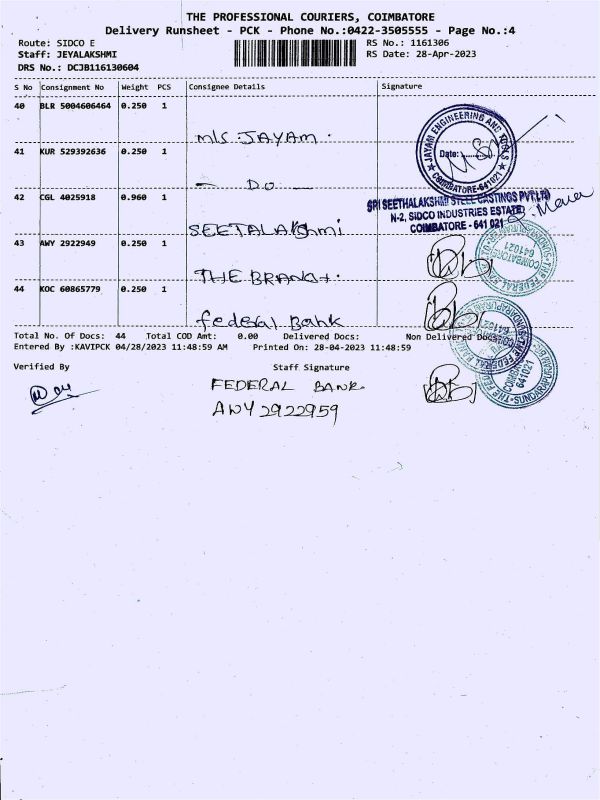 THE PROFESSIONAL COURIERS, COIMBATORE
Delivery Runsheet - PCK - Phone No.:0422-3505555 - Page No.:4
Route: SIDCO E
RS No.: 1161306
Staff: JEYALAKSHMI
RS Date: 28-Apr-2023
DRS No.: DCJB116130604
S No Consignment No Weight PCS Consignee Details Signature
40 BLR 5004606464 0.250 1
M/S JAYAM.
JAYAM ENGINEERING AND TOOLS
Date:
COIMBATORE-641021
41 KUR 529392636 0.250 1
— DO —
42 CGL 4025918 0.960 1
SEETALAKshmi
SRI SEETHALAKSHMI STEEL CASTINGS PVT LTD
N-2, SIDCO INDUSTRIES ESTATE
COIMBATORE - 641 021
43 AWY 2922949 0.250 1
THE BRANCH.
44 KOC 60865779 0.250 1
federal Bank
Total No. Of Docs: 44 Total COD Amt: 0.00 Delivered Docs: Non Delivered Docs:
Entered By :KAVIPCK 04/28/2023 11:48:59 AM Printed On: 28-04-2023 11:48:59
Verified By Staff Signature
FEDERAL BANK
AWY 2922959